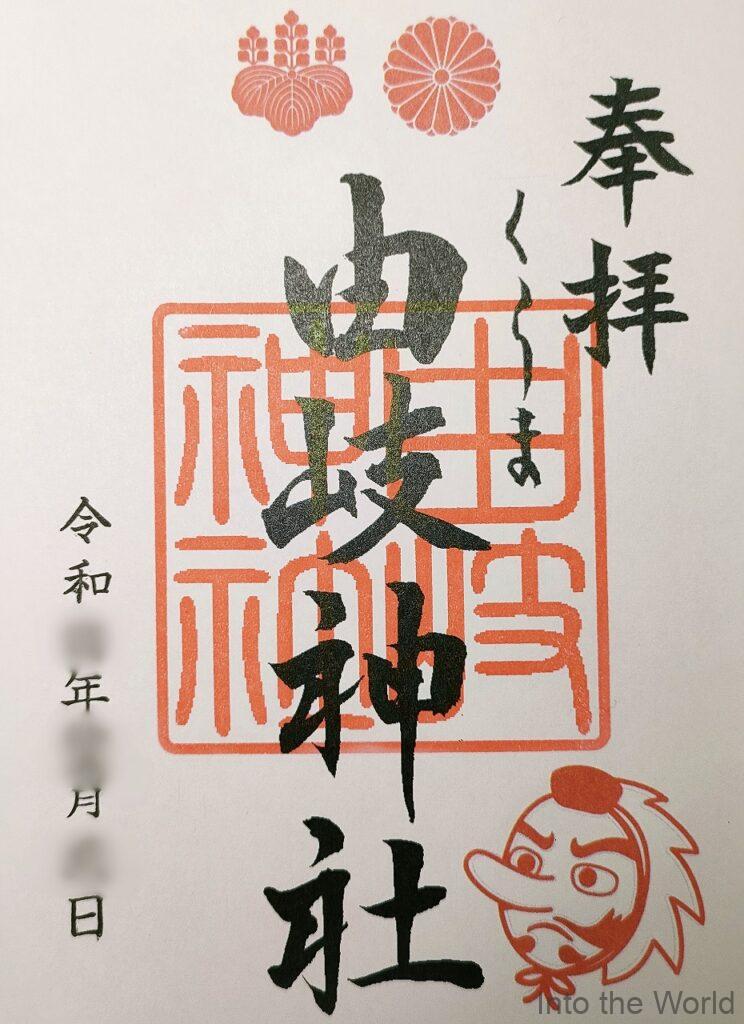 奉拝
くらま
由岐神社
由岐神社
令和 年 月 日
Into the World